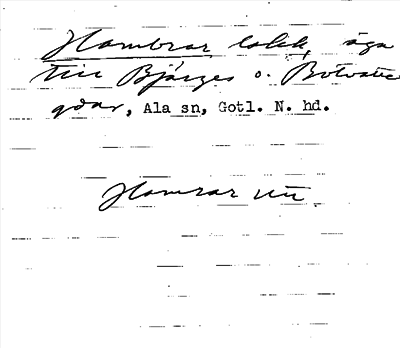 Hambrar lokk, äga
till Bjärges o. Botvatte
gdar, Ala sn, Gotl. N. hd.
Hamrar nu.